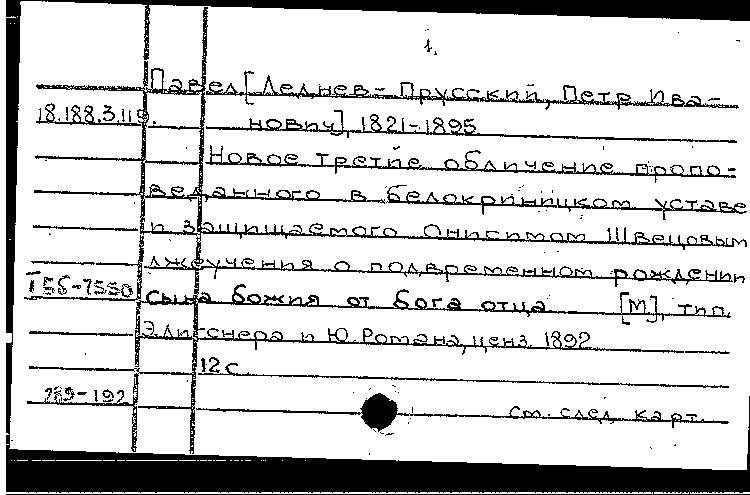 1.
Павел [Леднев-Прусский, Петр Ива-
18.188.3.119. нович], 1821-1895
Новое третие обличение пропо-
веданного в белокриницком уставе
и защищаемого Онисимом Швецовым
лжеучения о подвременном рождении
I 56-7550 сына божия от бога отца [М], тип.
Э. Лисснера и Ю. Романа, ценз. 1892
12 с.
189-192 См. след. карт.